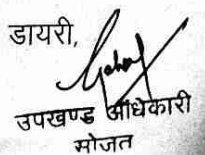 डायरी,
उपखण्ड अधिकारी
सोजत